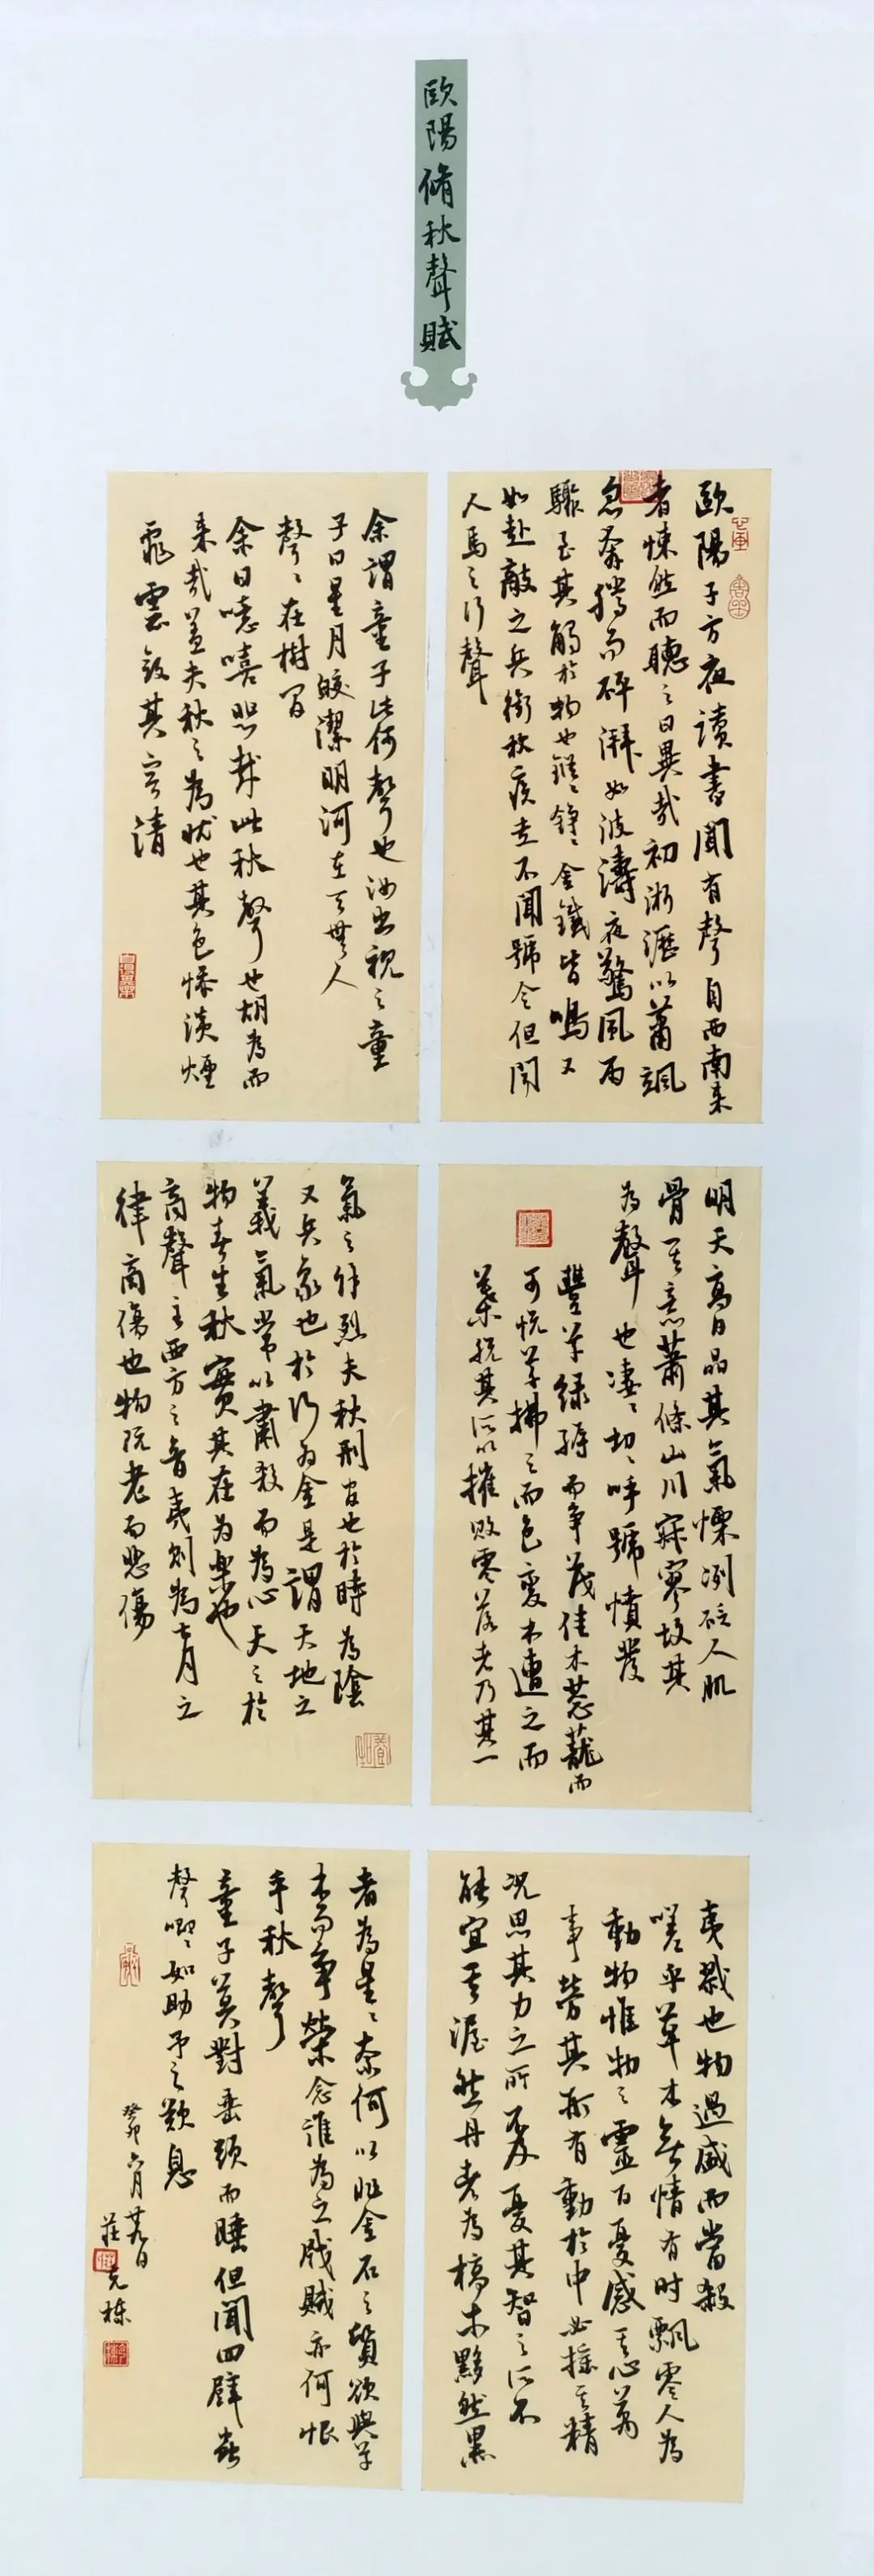 歐陽脩秋聲賦
歐陽子方夜讀書聞有聲自西南来
者悚然而聽之曰異哉初淅瀝以蕭颯
忽奔騰而砰湃如波濤夜驚風雨
驟至其觸於物也鏦〻錚〻金鐵皆鳴又
如赴敵之兵銜枚疾走不聞號令但聞
人馬之行聲
余謂童子此何聲也汝出視之童
子曰星月皎潔明河在天四無人
聲〻在樹間
余曰噫嘻悲哉此秋聲也胡為而
来哉蓋夫秋之為狀也其色慘淡煙
霏雲斂其容清
明天高日晶其氣慄冽砭人肌
骨其意蕭條山川寂寥故其
為聲也淒〻切〻呼號憤發
豐草綠縟而爭茂佳木蔥蘢而
可悅草拂之而色變木遭之而
葉脫其所以摧敗零落者乃其一
氣之餘烈夫秋刑官也於時為陰
又兵象也於行為金是謂天地之
義氣常以肅殺而為心天之於
物春生秋實其在為樂也
商聲主西方之音夷則為七月之
律商傷也物既老而悲傷
夷戮也物過盛而當殺
嗟乎草木無情有时飄零人為
動物惟物之靈百憂感其心萬
事勞其形有動於中必搖其精
況思其力之所不及憂其智之所不
能宜其渥然丹者為槁木黟然黑
者為星〻奈何以非金石之質欲與草
木而爭榮念誰為之戕賊亦何恨
乎秋聲
童子莫對垂頭而睡但聞四壁蟲
聲唧〻如助予之歎息
癸卯六月廿九日
莊克棟